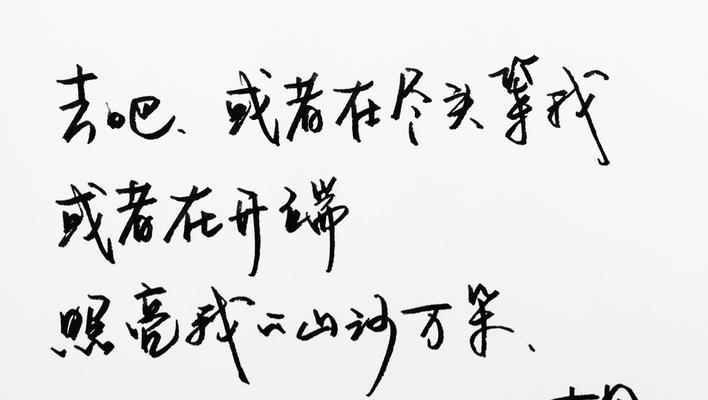 去吧、或者在尽头等我
或者在开端
照亮我的山河万朵、